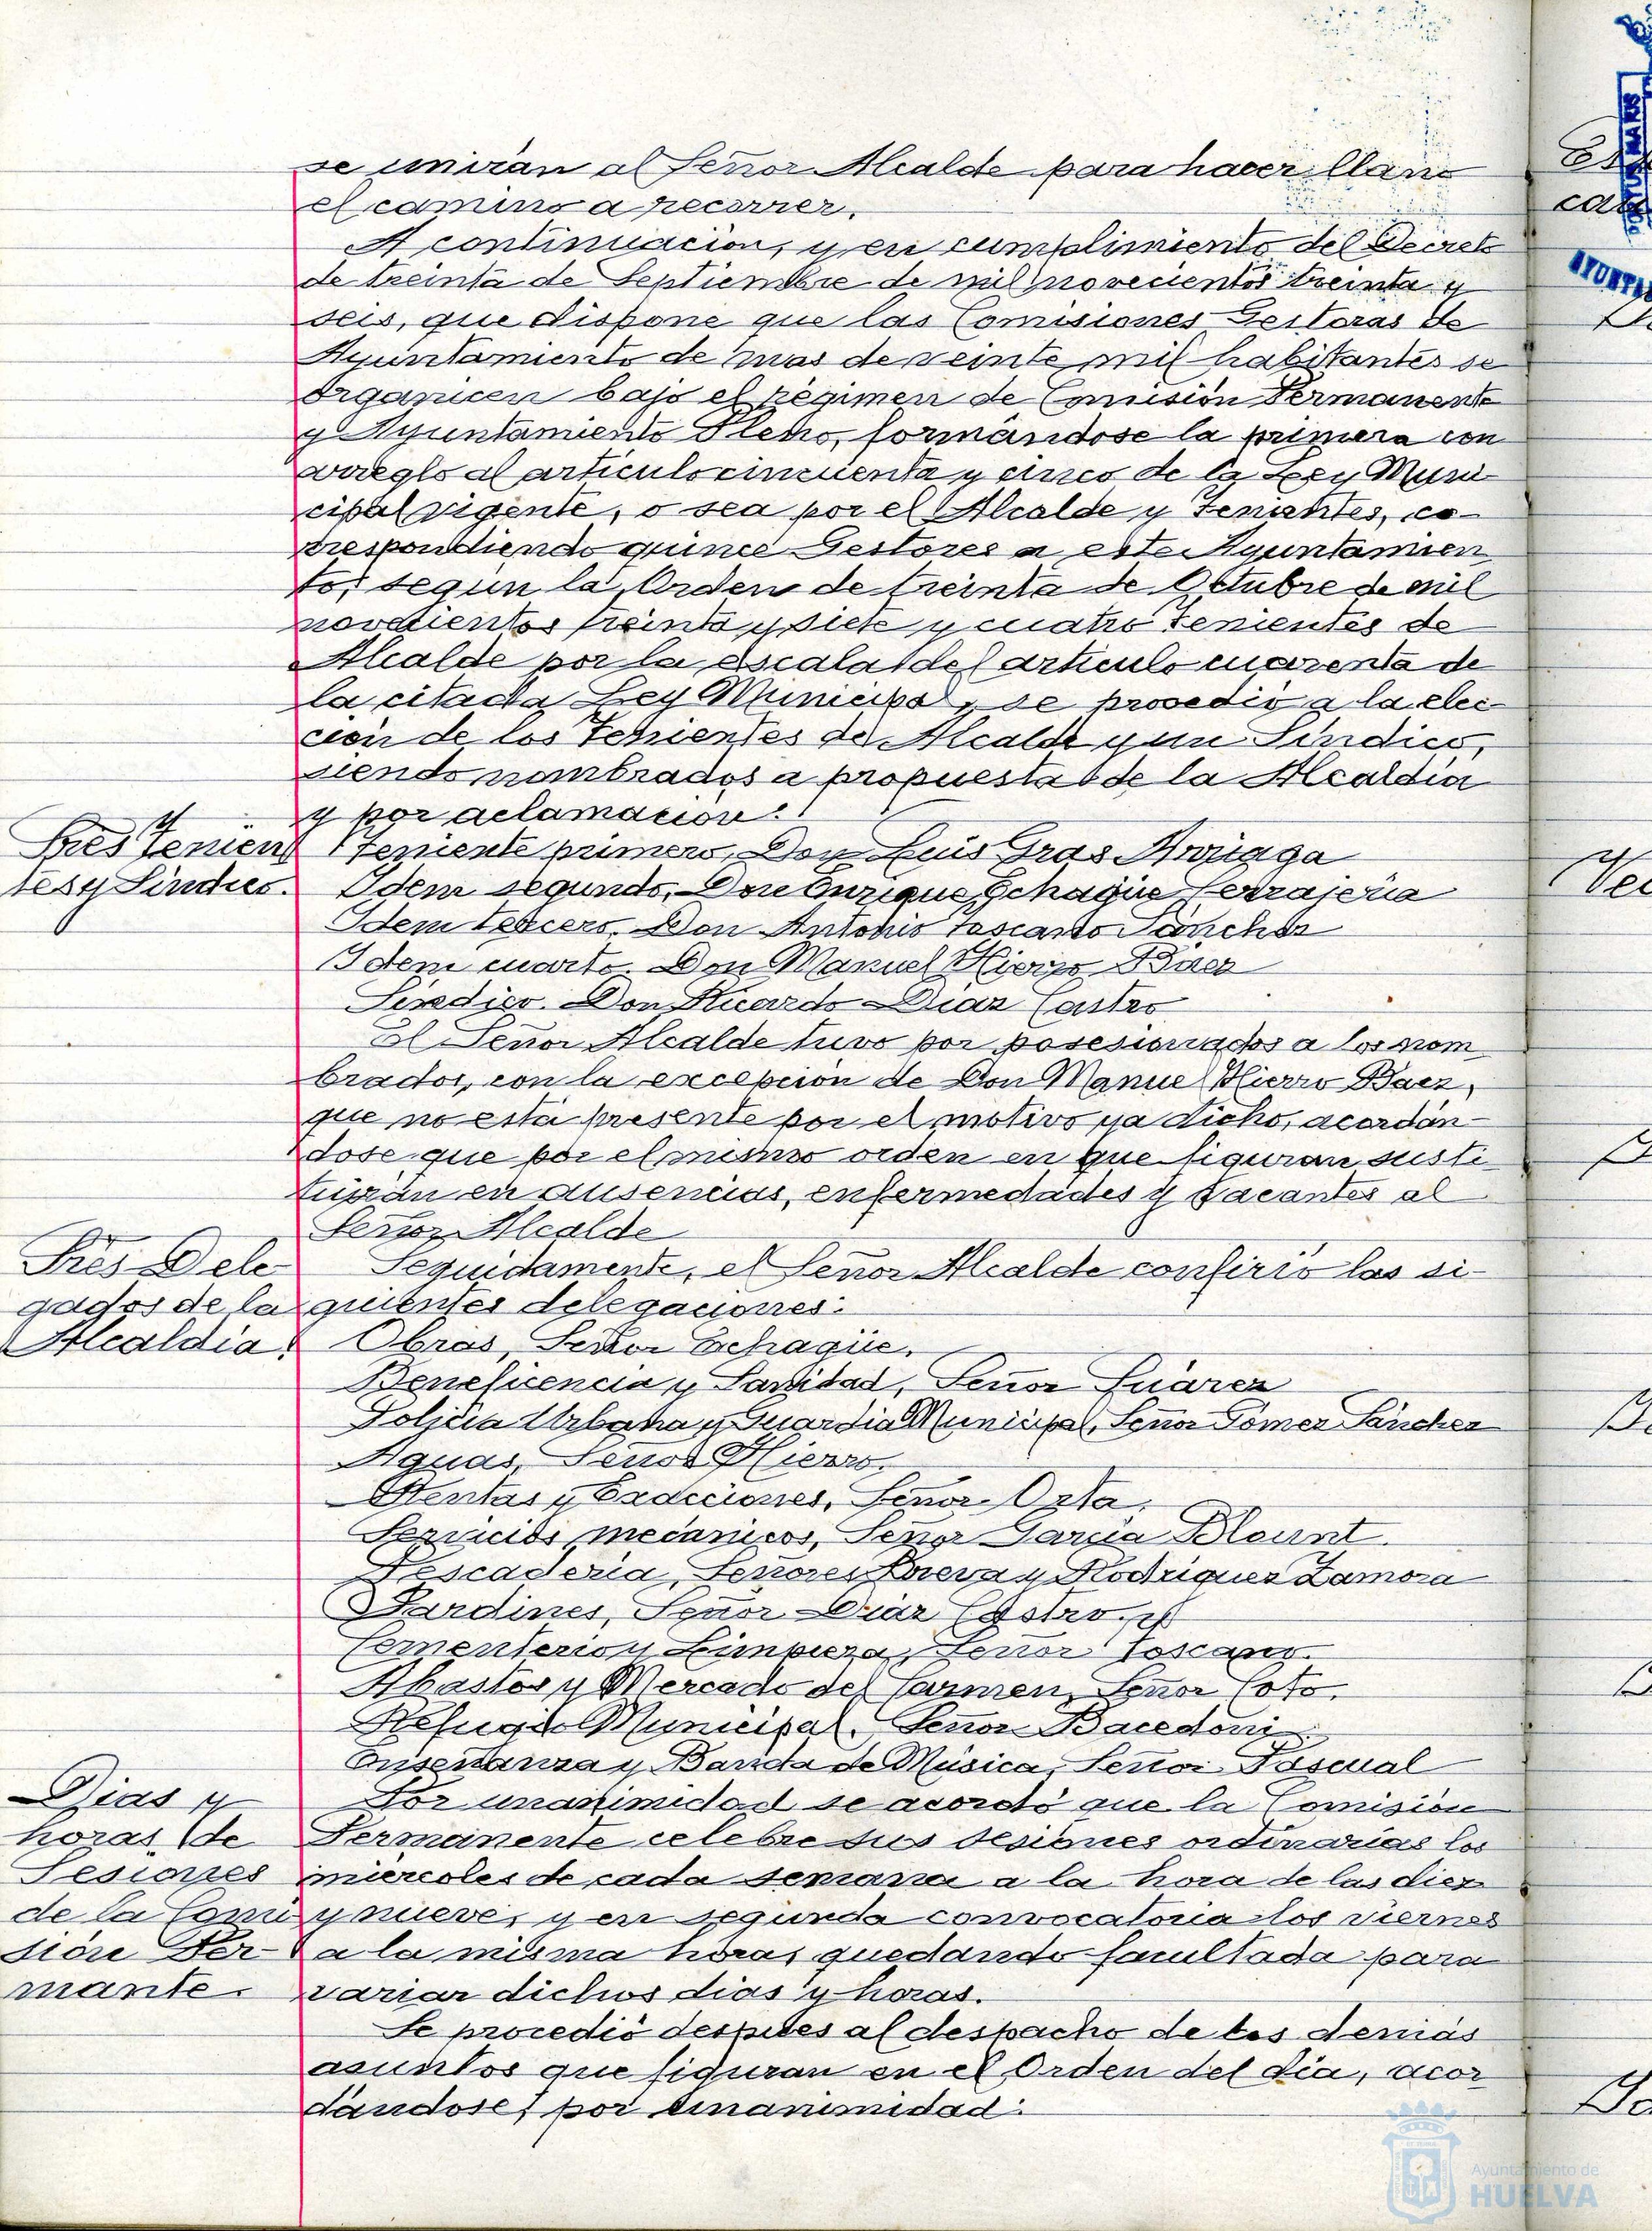 se unirán al Señor Alcalde para hacer llano
el camino a recorrer.
A continuación, y en cumplimiento del Decreto
de treinta de Septiembre de mil novecientos treinta y
seis, que dispone que las Comisiones Gestoras de
Ayuntamiento de mas de veinte mil habitantes se
organicen bajo el régimen de Comisión Permanente
y Ayuntamiento Pleno, formándose la primera con
arreglo al articulo cincuenta y cinco de la Ley Muni-
cipal vigente, o sea por el Alcalde y Tenientes, co-
rrespondiendo quince Gestores a este Ayuntamien
to, según la Orden de treinta de Octubre de mil
novecientos treinta y siete y cuatro Tenientes de
Alcalde por la escala del articulo cuarenta de
la citada Ley Municipal, se procedió a la elec-
ción de los Tenientes de Alcalde y un Síndico,
siendo nombrados a propuesta de la Alcaldía
y por aclamación:
Tres Tenien
tes y Síndico.
Teniente primero, Don Luis Gras Arrúaga
Idem segundo, Don Enrique Echagüe Cerrajería
Idem tercero, Don Antonio Toscano Sánchez
Idem cuarto. Don Manuel Hierro Báez
Síndico. Don Ricardo Díaz Castro
El Señor Alcalde tuvo por posesionados a los nom
brados, con la excepción de Don Manuel Hierro Baez,
que no está presente por el motivo ya dicho, acordán-
dose que por el mismo orden en que figuran susti
tuirán en ausencias, enfermedades y vacantes al
Señor Alcalde
Tres Dele
gados de la
Alcaldía.
Seguidamente, el Señor Alcalde confirió las si-
guientes delegaciones:
Obras, Señor Echagüe.
Beneficencia y Sanidad, Señor Suárez
Policía Urbana y Guardia Municipal, Señor Gómez Sánchez
Aguas, Señor Hierro.
Rentas y Exacciones, Señor Orta.
Servicios mecánicos, Señor García Blount.
Pescadería, Señores Rodríguez Zamora
Jardines, Señor Díaz Castro.
Cementerio y Limpieza, Señor Toscano.
Abastos y Mercado del Carmen, Señor Coto.
Refugio Municipal. Señor Bacedoni
Enseñanza y Banda de Música, Señor Pascual
Dias y
horas de
Sesiones
de la Comi
sión Per-
mante.
Por unanimidad se acordó que la Comisión
Permanente celebre sus sesiones ordinarias los
miercoles de cada semana a la hora de las diez
y nueve, y en segunda convocatoria los viernes
a la misma hora, quedando facultada para
variar dichos dias y horas.
Se procedió después al despacho de los demás
asuntos que figuran en el Orden del día, acor
dándose, por unanimidad:
Ayuntamiento de
HUELVA